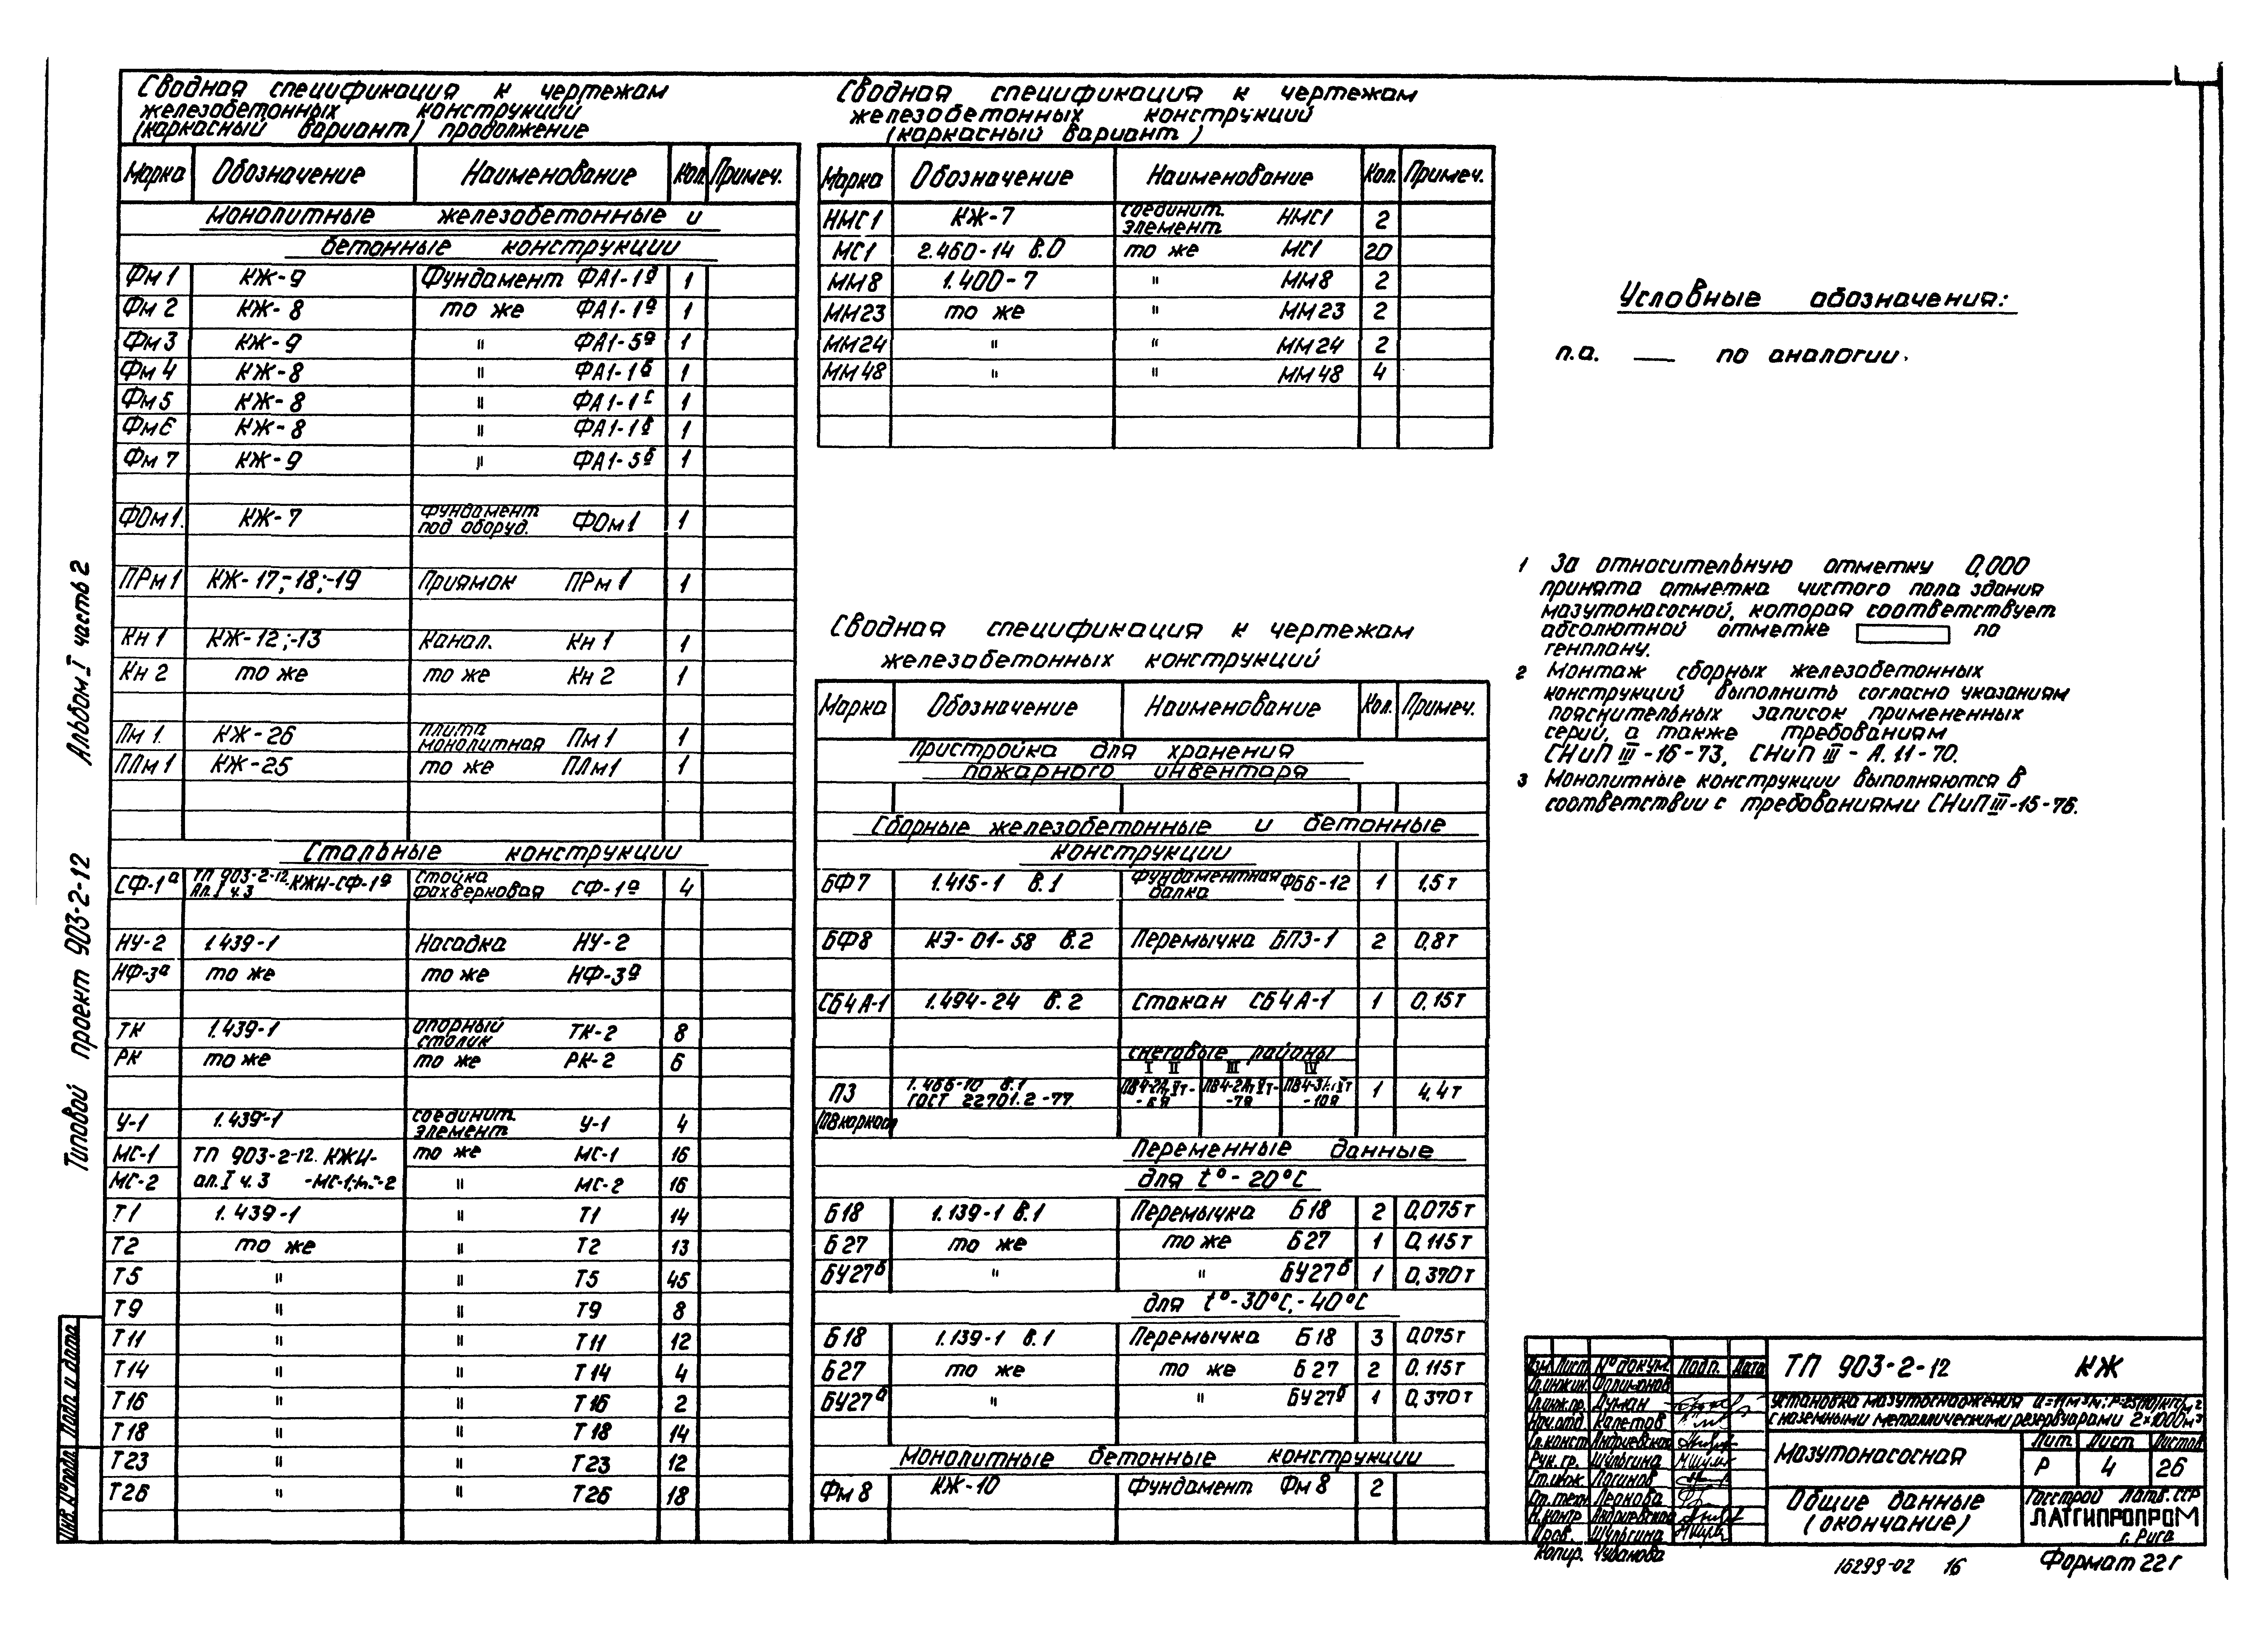 Сводная спецификация к чертежам
железобетонных конструкций
(каркасный вариант) продолжение
Марка Обозначение Наименование Кол. Примеч.
Монолитные железобетонные и
бетонные конструкции
Фм 1 КЖ-9 Фундамент ФА1-1д 1
Фм 2 КЖ-8 то же ФА1-1а 1
Фм 3 КЖ-9 " ФА1-5а 1
Фм 4 КЖ-8 " ФА1-1б 1
Фм 5 КЖ-8 " ФА1-1г 1
Фм 6 КЖ-8 " ФА1-1в 1
Фм 7 КЖ-9 " ФА1-5б 1
ФОм1. КЖ-7 фундамент под оборуд. ФОм1 1
ПРм1 КЖ-17;-18;-19 Приямок ПРм1 1
Кн 1 КЖ-12;-13 Канал. Кн 1 1
Кн 2 то же то же Кн 2 1
Пм 1. КЖ-26 плита монолитная Пм 1 1
ПЛм1 КЖ-25 то же ПЛм1 1
Стальные конструкции
СФ-1а ТП 903-2-12. Ал. I ч. 3 -КЖИ-СФ-1а стойка фахверковая СФ-1а 4
НУ-2 1.439-1 Насадка НУ-2
НФ-3а то же то же НФ-3а
ТК 1.439-1 опорный столик ТК-2 8
РК то же то же РК-2 6
У-1 1.439-1 соединит. элемент У-1 4
МС-1 ТП 903-2-12. КЖИ- то же МС-1 16
МС-2 ал. I ч. 3 -МС-1; -2 " МС-2 16
Т1 1.439-1 " Т1 14
Т2 то же " Т2 13
Т5 " " Т5 45
Т9 " " Т9 8
Т11 " " Т11 12
Т14 " " Т14 4
Т16 " " Т16 2
Т18 " " Т18 14
Т23 " " Т23 12
Т26 " " Т26 18
Сводная спецификация к чертежам
железобетонных конструкций
(каркасный вариант)
Марка Обозначение Наименование Кол. Примеч.
НМС1 КЖ-7 соединит. элемент НМС1 2
МС1 2.460-14 в.0 то же МС1 20
ММ8 1.400-7 " ММ8 2
ММ23 то же " ММ23 2
ММ24 " " ММ24 2
ММ48 " " ММ48 4
Сводная спецификация к чертежам
железобетонных конструкций
Марка Обозначение Наименование Кол. Примеч.
Пристройка для хранения
пожарного инвентаря
Сборные железобетонные и бетонные
конструкции
БФ7 1.415-1 в.1 фундаментная балка ФБ6-12 1 1,5т
БФ8 КЭ-01-58 в.2 Перемычка БПЗ-1 2 0,8т
СБ4А-1 1.494-24 в.2 Стакан СБ4А-1 1 0,15т
снеговые районы
I II III IV
П3 1.466-10 в.1 ГОСТ 22701.2-77. 1 4,4т
Переменные данные
для t°-20°С
Б18 1.139-1 в.1 Перемычка Б18 2 0,075т
Б27 то же то же Б27 1 0,115т
БУ27б " " БУ27б 1 0,370т
для t°-30°С,-40°С
Б18 1.139-1 в.1 Перемычка Б18 3 0,075т
Б27 то же то же Б27 2 0.115т
БУ27б " " БУ27б 1 0,370т
Монолитные бетонные конструкции
Фм 8 КЖ-10 Фундамент Фм 8 2
Условные обозначения:
п.а. — по аналогии.
1 За относительную отметку 0,000
принята отметка чистого пола здания
мазутонасосной, которая соответствует
абсолютной отметке по
генплану.
2 Монтаж сборных железобетонных
конструкций выполнить согласно указаниям
пояснительных записок примененных
серий, а также требованиям
СНиП III-16-73, СНиП III-А.11-70.
3 Монолитные конструкции выполняются в
соответствии с требованиями СНиП III-15-76.
Альбом I часть 2
Типовой проект 903-2-12
Подп. и дата
Инв. № подл.
Изм. Лист № докум. Подп. Дата
Гл.инжин. Филимонов
Гл.инж.пр. Думан
Нач.отд. Калетов
Гл.конст. Андриевская
Рук. гр. Шульгина
Ст.инж. Логинов
Ст.техн. Леонова
Н.контр. Андриевская
Пров. Шульгина
Копир. Чуванова
ТП 903-2-12 КЖ
установка мазутоснабжения
с наземными металлическими резервуарами 2×1000м³
Мазутонасосная
Лит. Лист Листов
Р 4 26
Общие данные
(окончание)
Госстрой Латв.ССР
ЛАТГИПРОПРОМ
г. Рига
16299-02 16
Формат 22г